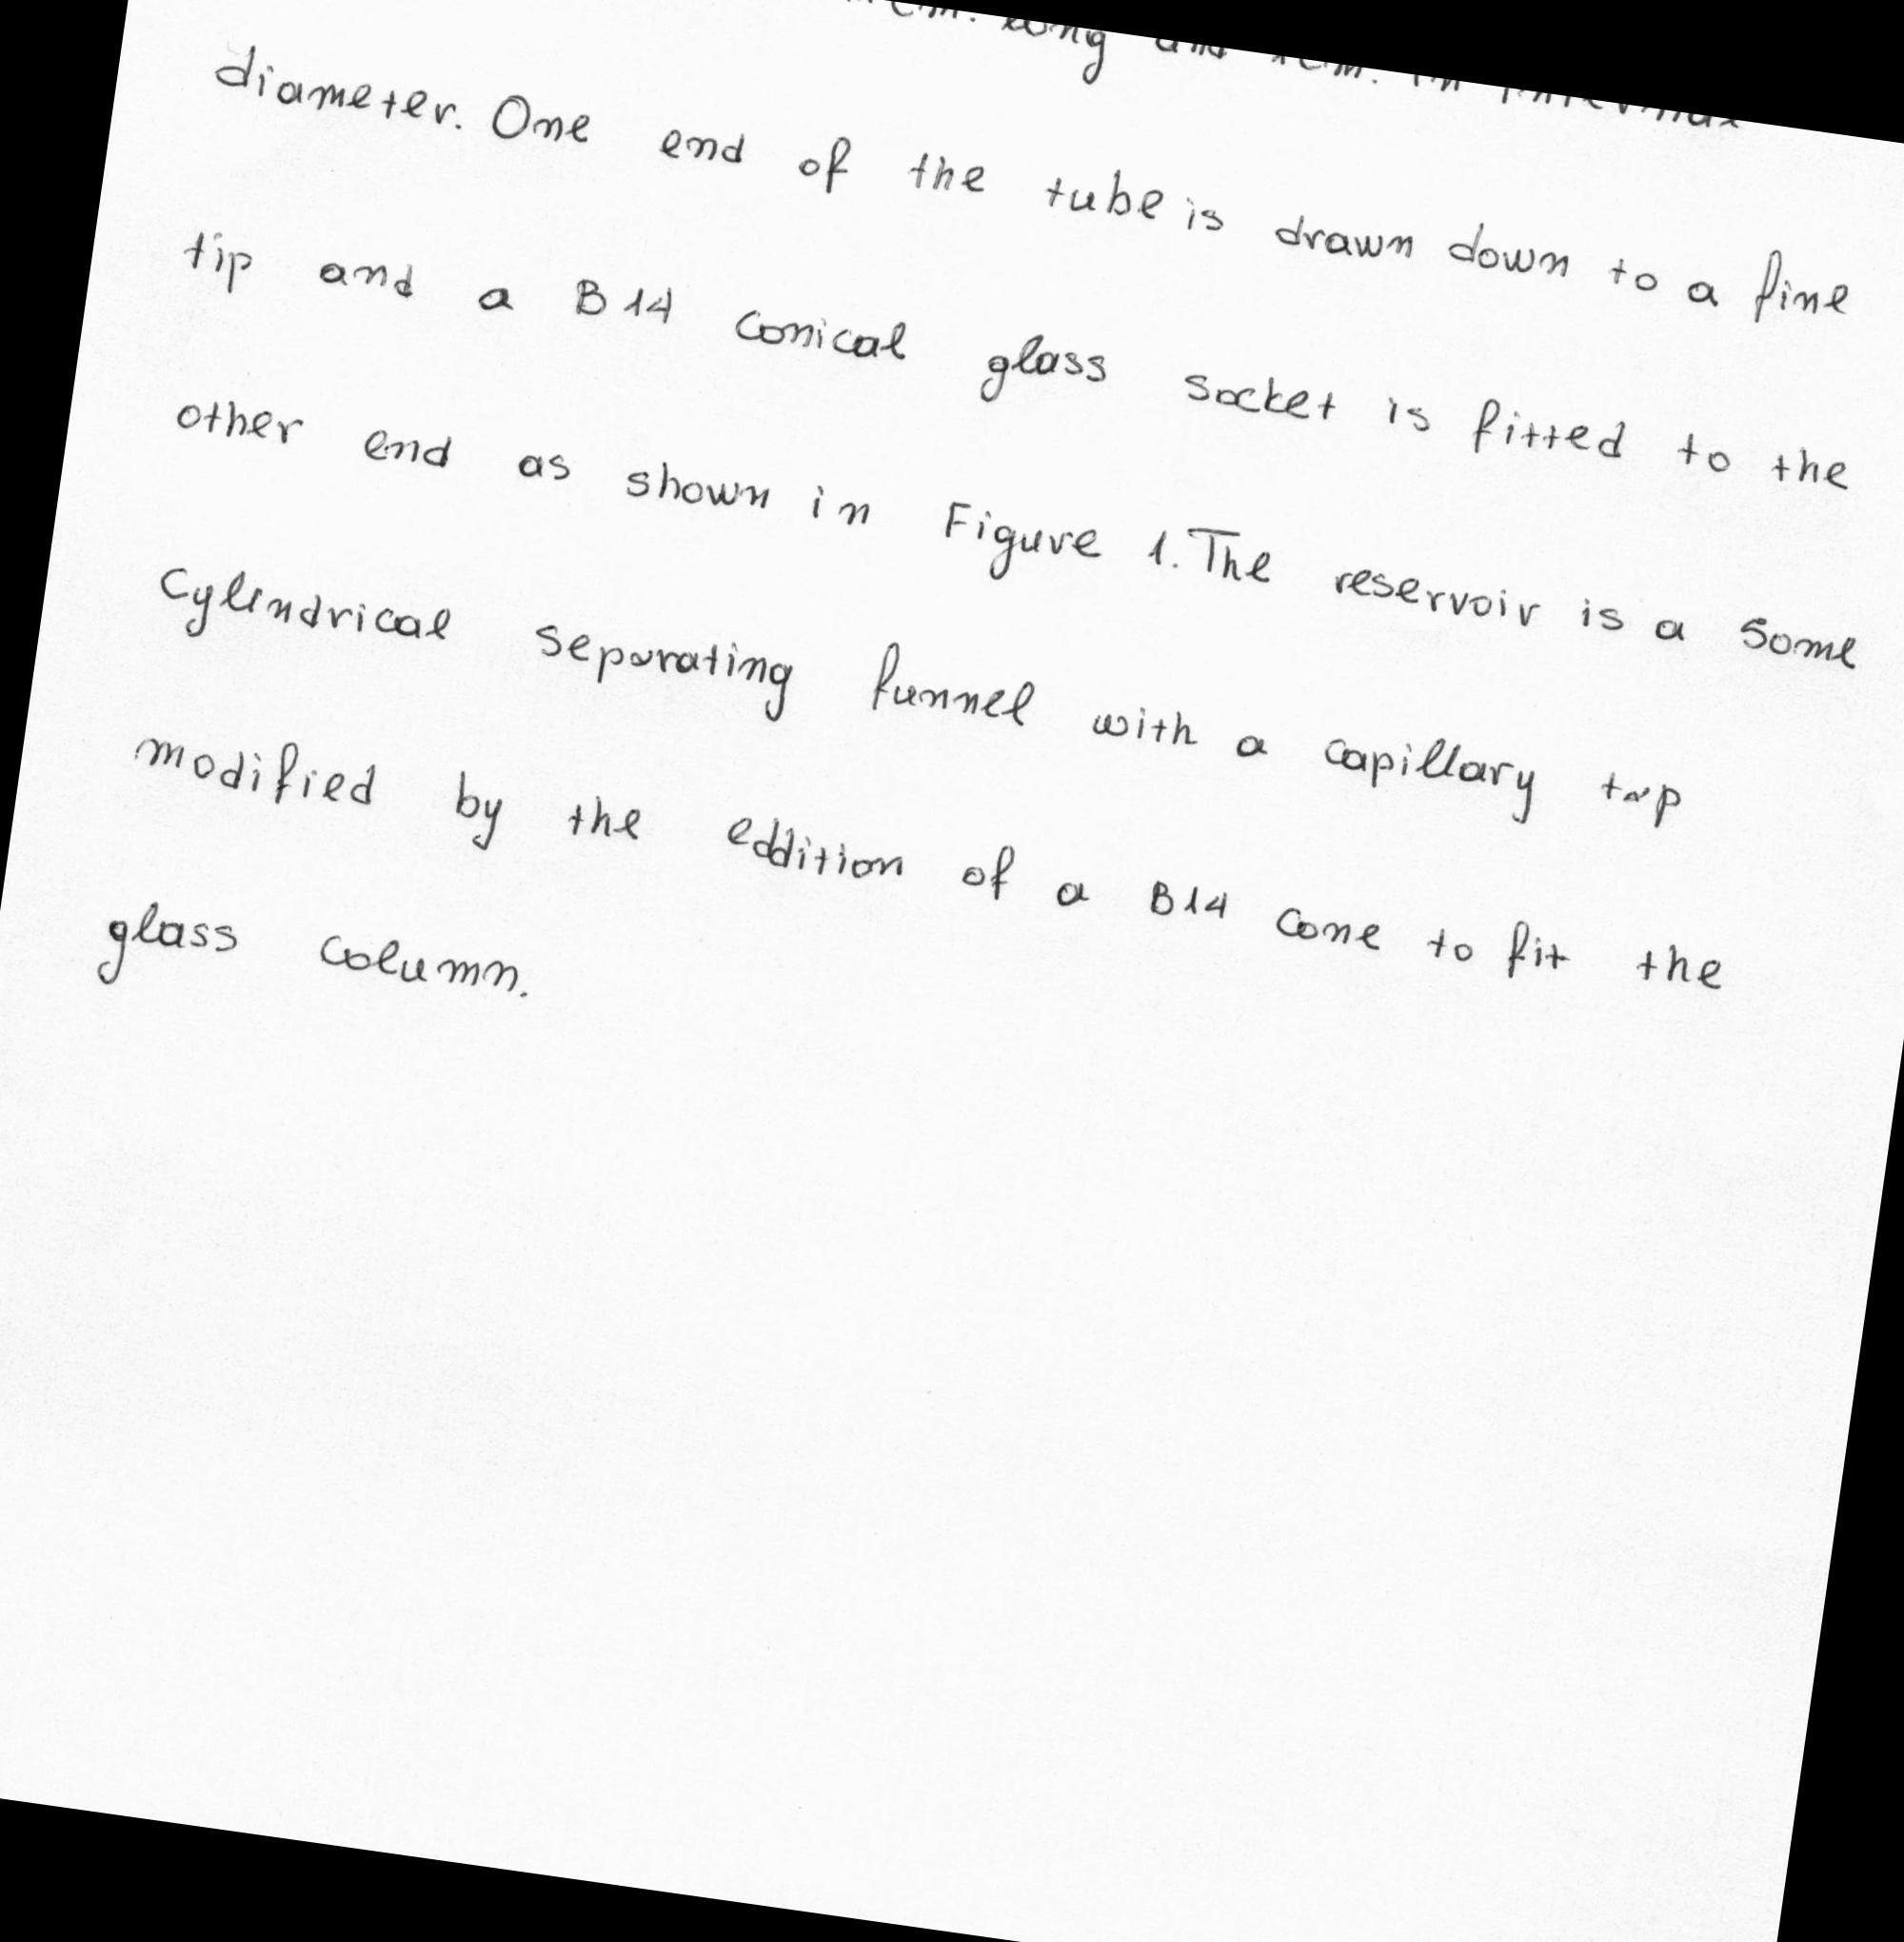 cm. long and 1cm. in internal
diameter. One end of the tube is drawn down to a fine
tip and a B14 conical glass socket is fitted to the
other end as shown in Figure 1. The reservoir is a some
Cylindrical separating funnel with a capillary tap
modified by the eddition of a B14 cone to fit the
glass column.